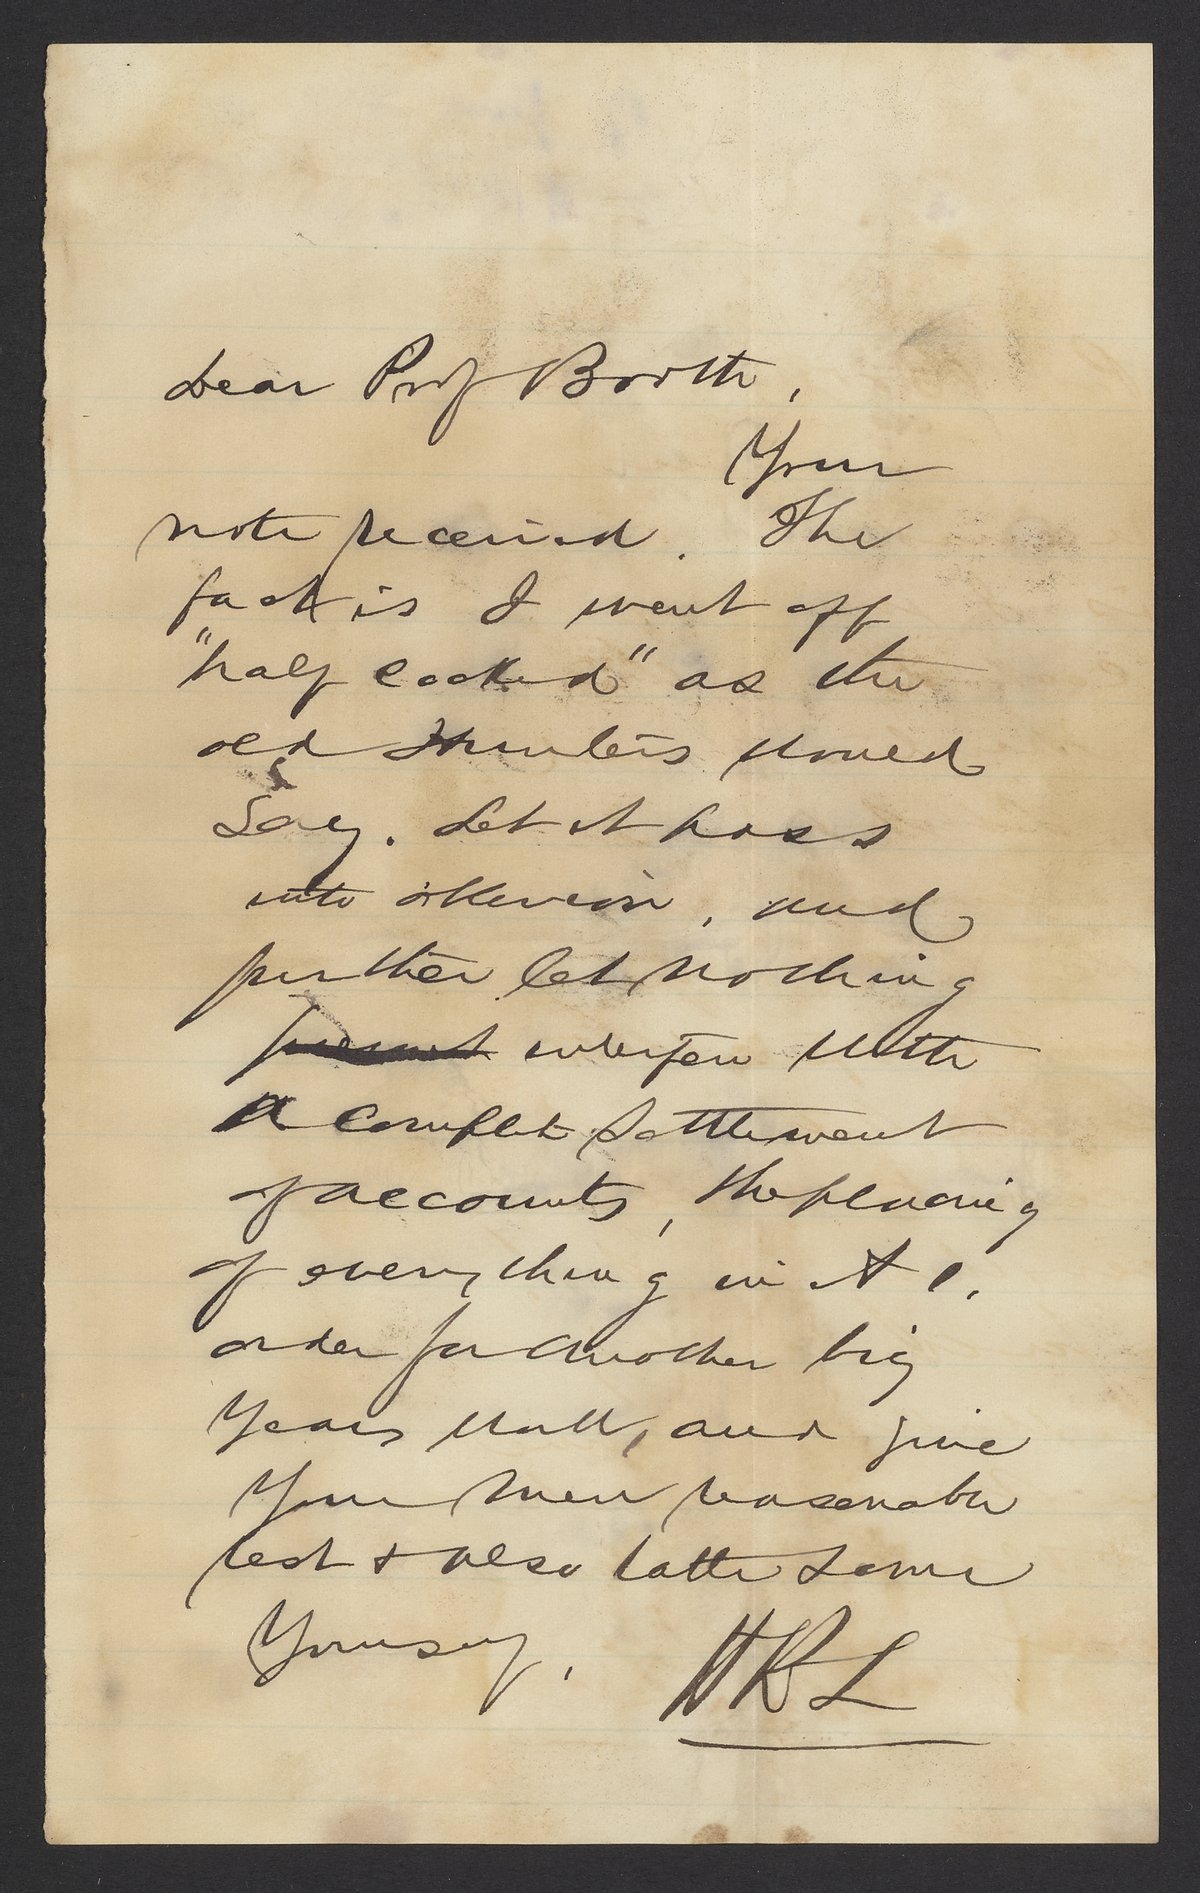 Dear Prof Booth,
Your
note received. The
fact is I went off
"half cocked" as the
old Hunters would
say. Let it pass
into oblivion, and
further let nothing
prevent interfere with
a complete settlement
of accounts, the placing
of everything in A 1.
order for another big
Years work, and give
Your men reasonable
rest & also take some
Yourself,
HRL